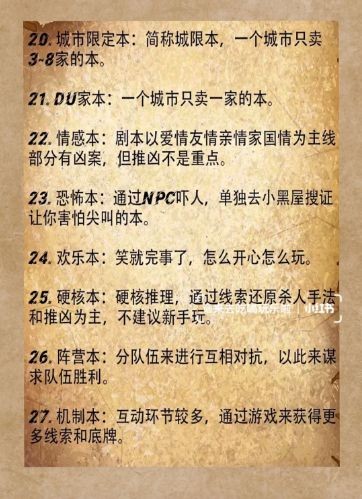 20. 城市限定本：简称城限本，一个城市只卖
3-8家的本。
21. DU家本：一个城市只卖一家的本。
22. 情感本：剧本以爱情友情亲情家国情为主线
部分有凶案，但推凶不是重点。
23. 恐怖本：通过NPC吓人，单独去小黑屋搜证
让你害怕尖叫的本。
24. 欢乐本：笑就完事了，怎么开心怎么玩。
25. 硬核本：硬核推理，通过线索还原杀人手法
和推凶为主，不建议新手玩。
小红书
26. 阵营本：分队伍来进行互相对抗，以此来谋
求队伍胜利。
27. 机制本：互动环节较多，通过游戏来获得更
多线索和底牌。